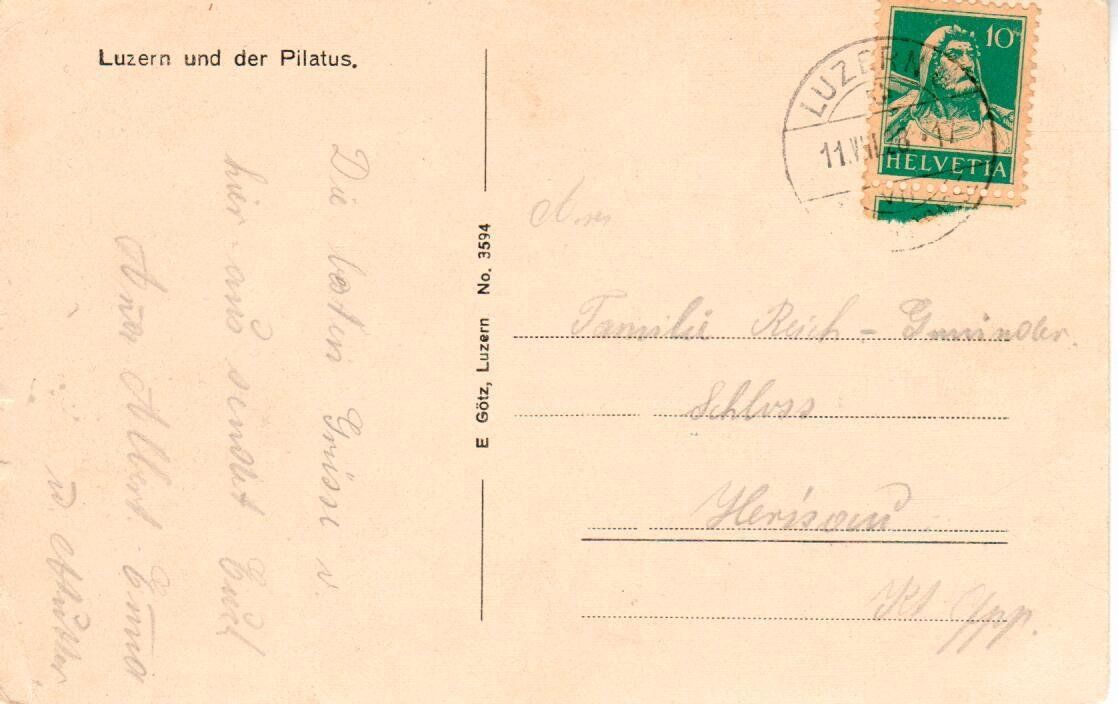 Luzern und der Pilatus.
Die besten Grüsse v.
hier aus sendet Euch
Albert. Emma
u. Mutter
E Götz, Luzern No. 3594
10
HELVETIA
LUZERN
11.VIII.
An
Familie Reich - Gmünder.
Schloss
Herisau
Kt. App.